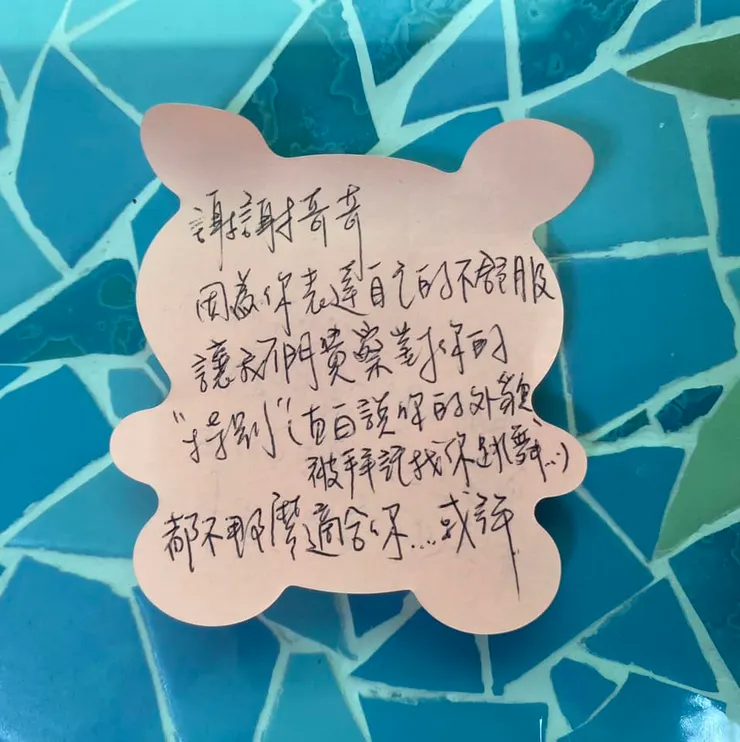 謝謝奇奇
因為你表達自己的不舒服
讓我們門覺察對你的
"特別"(直白說你的外貌、
被拜託找你跳舞...)
都不那麼適合你....或許